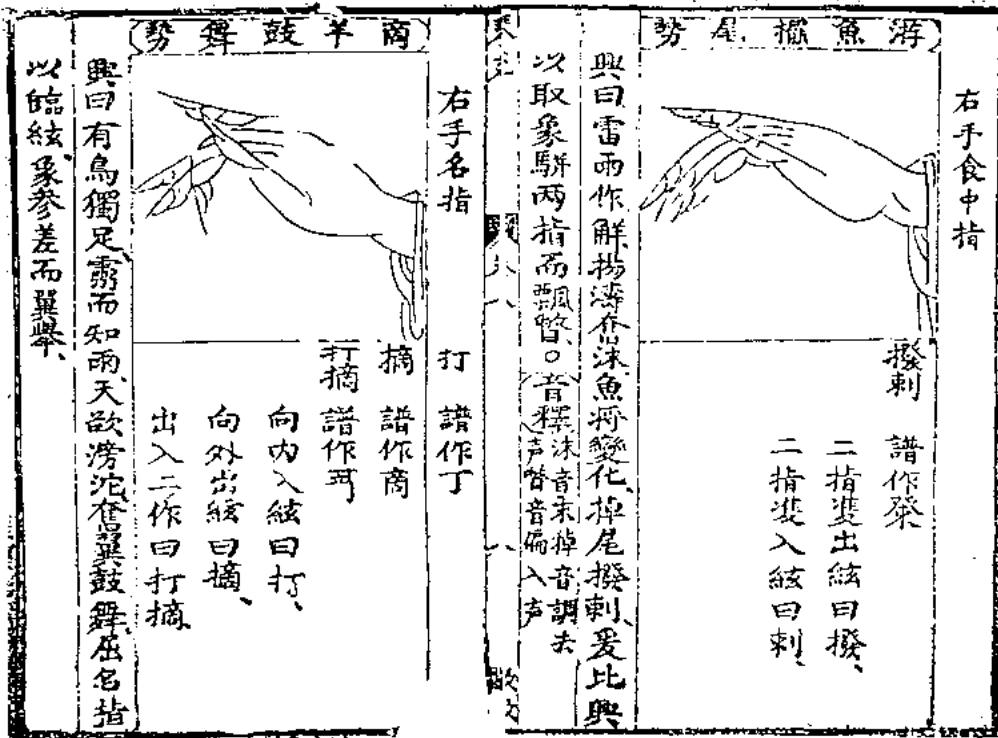 右手食中指
游魚擺尾勢
撥剌　譜作癶
二指雙出絃曰撥、
二指雙入絃曰剌、
興曰雷雨作解揚濤奮沫魚將變化、掉尾撥剌、爰比興
以取象駢两指而飄瞥。○音釋沫音末掉音調去声瞥音偏入声
右手名指
商羊鼓舞勢
打　譜作丁
摘　譜作商
打摘　譜作
向内入絃曰打、
向外出絃曰摘、
出入二作曰打摘
興曰有鳥獨足、霽而知雨、天欲滂沱、奮翼鼓舞、屈名指
以臨絃、象參差而翼舉、